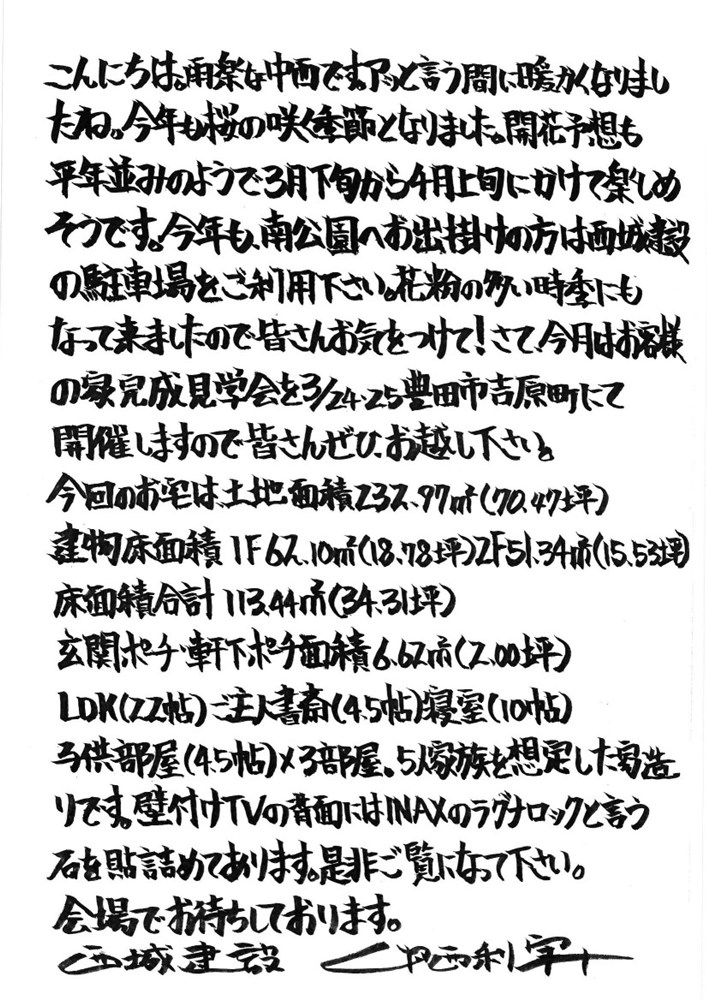 こんにちは。雨楽な中西です。アッと言う間に暖かくなりまし
たね。今年も桜の咲く季節となりました。開花予想も
平年並みのようで3月下旬から4月上旬にかけて楽しめ
そうです。今年も、南公園へお出掛けの方は西城建設
の駐車場をご利用下さい。花粉の多い時季にも
なって来ましたので皆さんお気をつけて!さて、今月はお客様
の家完成見学会を3/24・25豊田市吉原町にて
開催しますので皆さんぜひ、お越し下さい。
今回のお宅は、土地面積232.97㎡(70.47坪)
建物床面積 1F62.10㎡(18.78坪)2F51.34㎡(15.53坪)
床面積合計 113.44㎡(34.31坪)
玄関ポーチ・軒下ポーチ面積6.62㎡(2.00坪)
LDK(22帖)ご主人書斎(4.5帖)寝室(10帖)
子供部屋(4.5帖)×3部屋。5人家族を想定した家造
りです。壁付けTVの背面にはINAXのラグナロックと言う
石を貼詰めております。是非ご覧になって下さい。
会場でお待ちしております。
西城建設 中西利